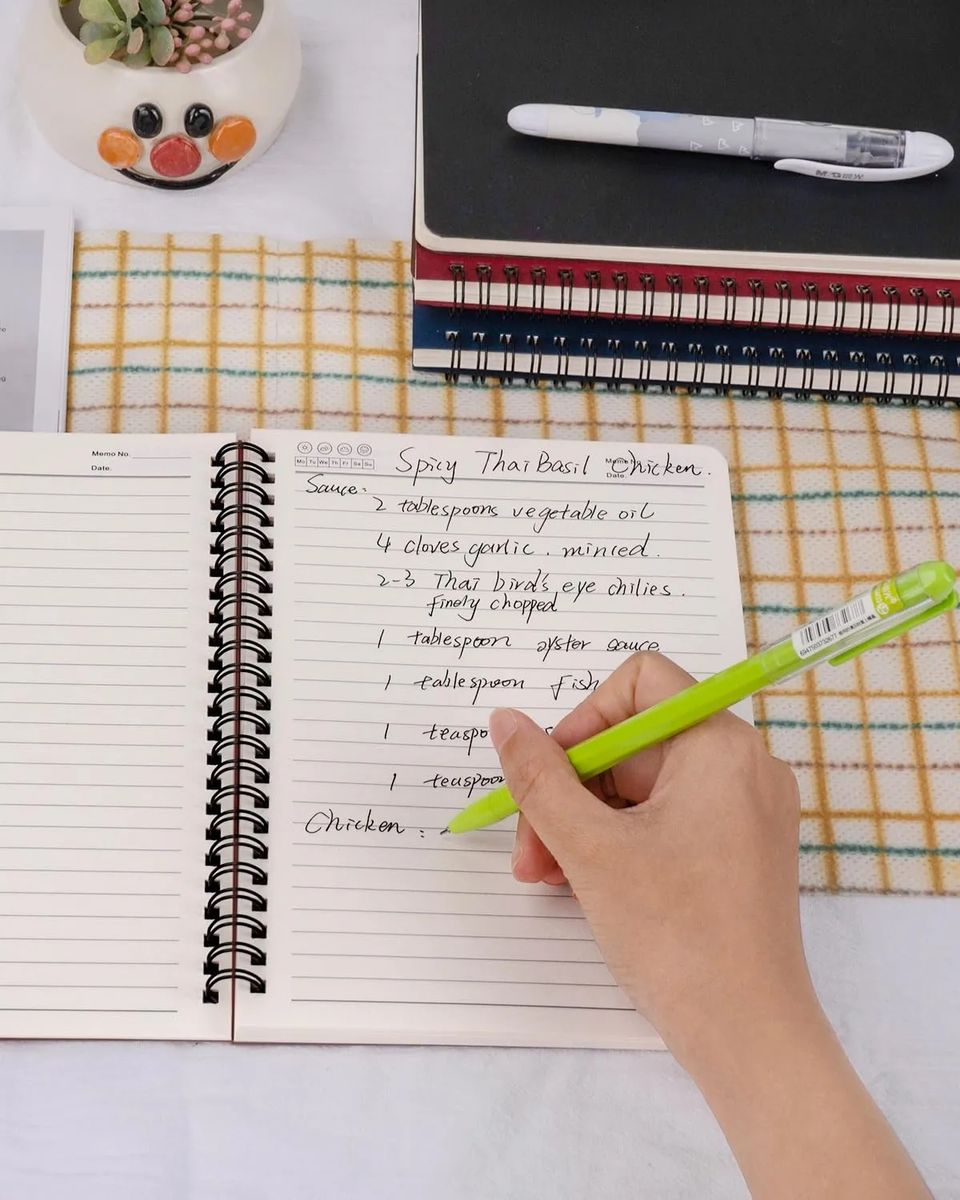 Memo No.
Date.
Mo Tu We Th Fr Sa Su
Spicy Thai Basil Chicken.
Date.
Sauce:
2 tablespoons vegetable oil
4 cloves garlic, minced.
2-3 Thai bird's eye chilies.
finely chopped
1 tablespoon oyster sauce
1 tablespoon fish
1
1 teaspoon
Chicken :